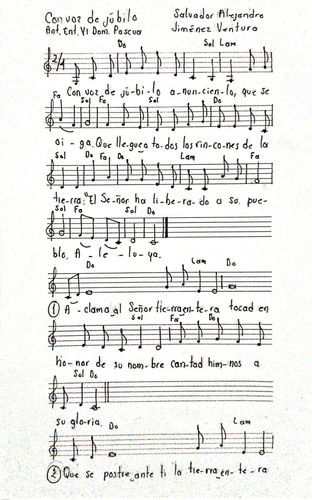 Con voz de júbilo
Salvador Alejandro
Ant. Ent. VI Dom. Pascua
Jiménez Ventura
Do Sol Lam
2/4
Con voz de jú-bi-lo a-nun-cien-lo, que se
Fa Sol Fa Sol Do
oi-ga. Que llegue a to-dos los rin-co-nes de la
Sol Do Fa Do Sol Lam Fa
tie-rra: "El Se-ñor ha li-be-ra-do a su pue-
Sol Fa Sol Do
blo. A-le-lu-ya.
Do Lam Do
1 A-clama al Señor tie-rra en-te-ra tocad en
Sol Fa Do
ho-nor de su nom-bre can-tad him-nos a
Sol Do
su glo-ria.
Do Lam
2 Que se postre ante ti la tie-rra en-te-ra